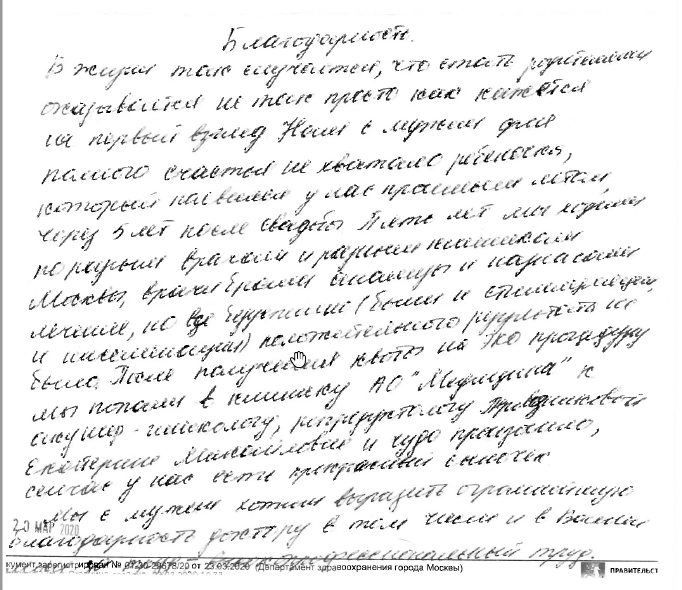 Благодарность.
В жизни так случается, что стать родителями
оказывается не так просто как кажется
на первый взгляд Нам с мужем для
полного счастья не хватало ребеночка,
который появился у нас прошлым летом,
через 5 лет после свадьбы Пять лет мы ходили
по разным врачам и разным клиникам
Москвы, врачи брали анализы и назначали
лечение, но все безуспешно (были и стимуляции,
и инсеминации) положительного результата не
было. После получения квоты на Эко процедуру
мы попали в клинику АО "Медицина" к
акушер-гинекологу, репродуктологу
Екатерине Михайловне и чудо произошло,
сейчас у нас есть прекрасный сыночек
Мы с мужем хотим выразить огромнейшую
20 МАР 2020
благодарность доктору в том числе и
профессиональный труд.
кумент зарегистрирован № от 23.03.2020 (Департамент здравоохранения города Москвы)
ПРАВИТЕЛЬСТ